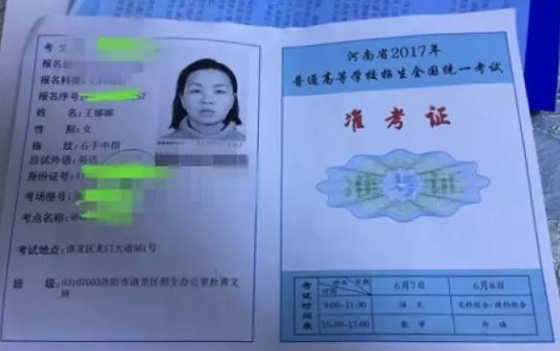 考生
报名
报名科类:
报名序号: 57
姓 名: 王娜娜
性 别: 女
指 纹: 右手中指
应试外语: 英语
身份证号:
考场座号:
考点名称:
考试地点: 洛龙区龙门大道561号
班 级: 03107003洛阳市洛龙区招生办公室社青文
河南省2017年
普通高等学校招生全国统一考试
准考证
考试时间表
时间 6月7日 6月8日
9:00-11:30 语文 文科综合/理科综合
15:00-17:00 数学 外语